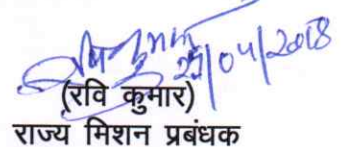 25/04/2018
(रवि कुमार)
राज्य मिशन प्रबंधक